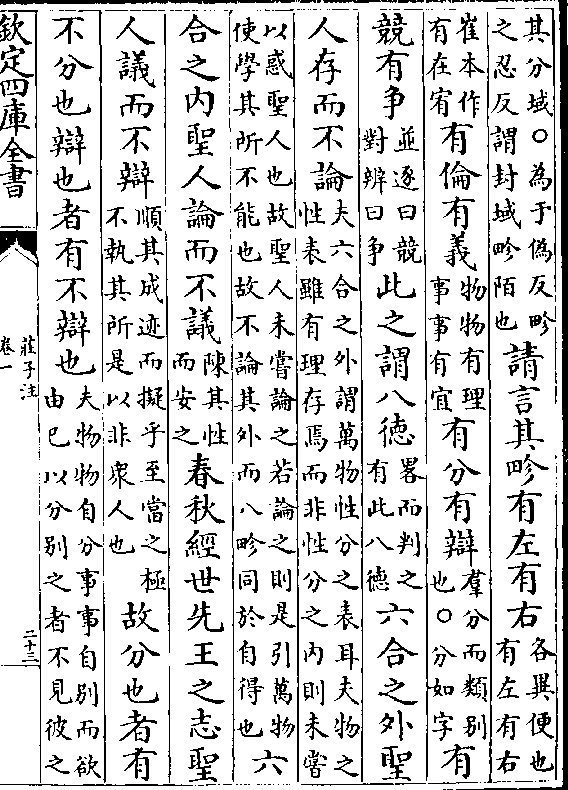 其分域○為于偽反畛之忍反謂封域畛陌也請言其畛有左有右各異便也有左有右
崔本作有在宥有倫有義物物有理事事有宜有分有辯羣分而類別也○分如字有
競有争並逐曰競對辨曰争此之謂八德畧而判之有此八德六合之外聖
人存而不論夫六合之外謂萬物性分之表耳夫物之性表雖有理存焉而非性分之内則未嘗
以惑聖人也故聖人未嘗論之若論之則是引萬物使學其所不能也故不論其外而八畛同於自得也六
合之内聖人論而不議陳其性而安之春秋經世先王之志聖
人議而不辯順其成迹而擬乎至當之極不執其所是以非衆人也故分也者有
不分也辯也者有不辯也夫物物自分事事自別而欲由已以分別之者不見彼之
欽定四庫全書
莊子注
卷一
二十三